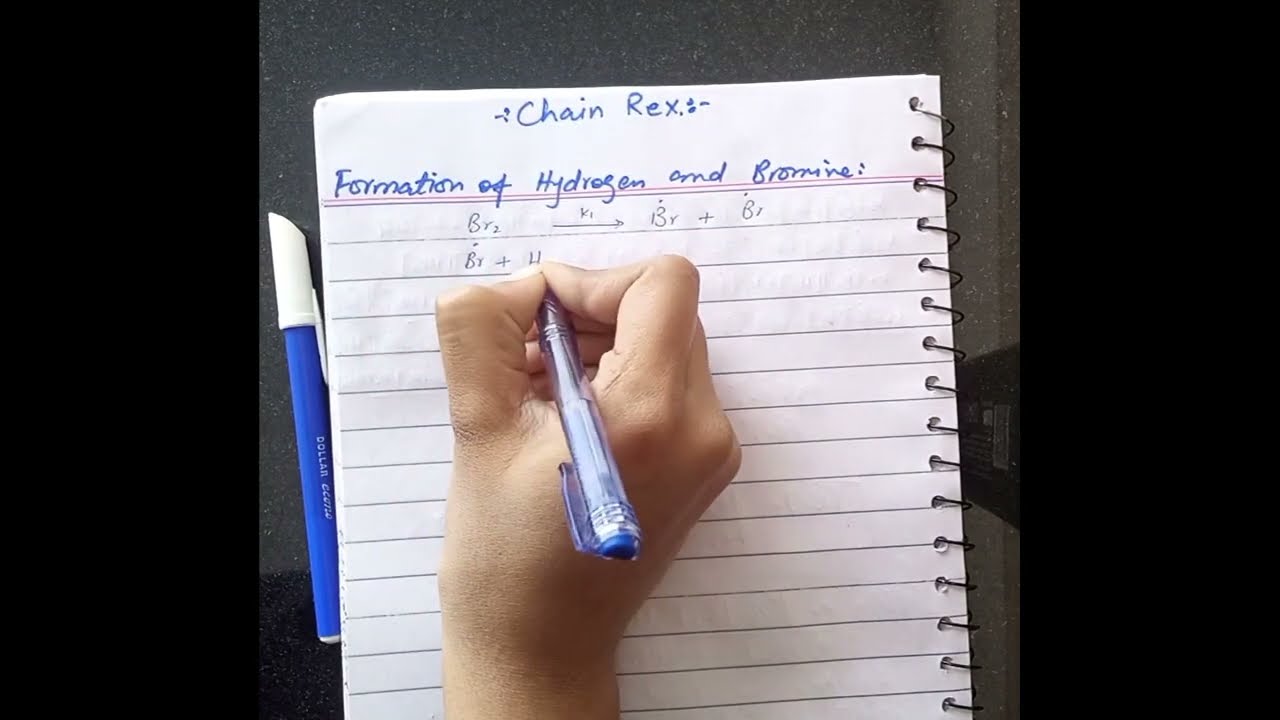 -:Chain Rex.:-
Formation of Hydrogen and Bromine:
Br₂ —k₁→ Ḃr + Ḃr
Ḃr + H
DOLLAR